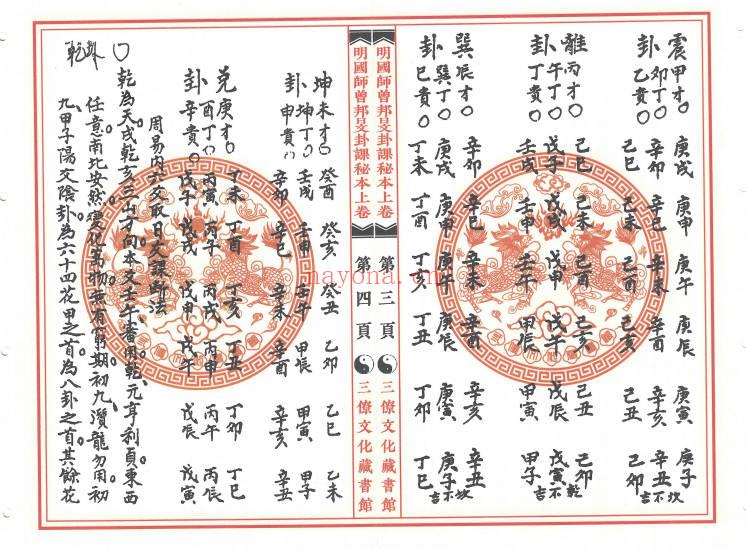 震甲才〇 庚戌 庚申 庚午 庚辰 庚寅 庚子坎
卯丁〇 辛卯 辛巳 辛未 辛酉 辛亥 辛丑吉不
卦乙貴〇 己巳 己未 己酉 己亥 己丑 己卯
離丙才〇 己巳 己未 己酉 己亥 己丑 己卯乾
午丁〇 戊子 戊戌 戊申 戊午 戊辰 戊寅吉不
卦丁貴〇 壬戌 壬申 壬午 甲辰 甲寅 甲子
巽辰才〇 辛卯 辛巳 辛未 辛酉 辛亥 辛丑
巽丁〇 庚戌 庚申 庚午 庚辰 庚寅 庚子坎吉不
卦巳貴〇 丁未 丁酉 丁亥 丁丑 丁卯 丁巳
明國師曾邦旻卦課秘本上卷 第三頁 三僚文化藏書館
明國師曾邦旻卦課秘本上卷 第四頁 三僚文化藏書館
坤未才〇 癸酉 癸亥 癸丑 乙卯 乙巳 乙未
坤丁〇 壬戌 壬申 壬午 甲辰 甲寅 甲子
卦申貴〇 辛卯 辛巳 辛未 辛酉 辛亥 辛丑
兌庚才〇 丁未 丁酉 丁亥 丁丑 丁卯 丁巳
酉丁〇 丙寅 丙子 丙戌 丙申 丙午 丙辰
卦辛貴〇 戊子 戊戌 戊申 戊午 戊辰 戊寅
周易内六爻取日天課斷法
〇 乾為天戌乾亥三山才向本爻壬午審用乾。元亨利貞、東西
任意南北安然。變化萬物無有窮期。初九潛龍勿用。初
乾卦 九甲子陽交陰卦為六十四花甲之首為八卦之首。其餘花